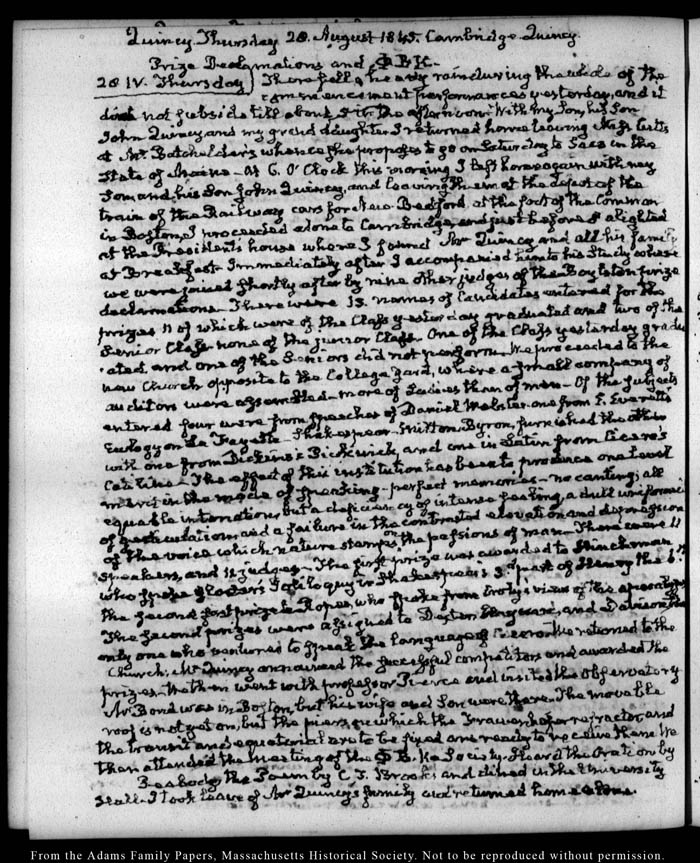 Quincy Thursday 28. August 1845. Cambridge-Quincy.
Prize Declamations and ΦBK.
28 IV. Thursday) There fell a heavy rain during the whole of the
commencement performances yesterday, and it
did not subside till about 5 in the afternoon. With my Son, his Son
John Quincy, and my grand daughter I returned home leaving
at Mr Batchelder's whence she proposes to go on Saturday to Saco in the
State of Maine - At 6. O'Clock this morning I left home again with my
Son and his Son John Quincy, and leaving them at the depot of the
train of the Railway cars for New Bedford, at the foot of the Common
in Boston, I proceeded alone to Cambridge, and just before 8 alighted
at the President's house where I found Mr Quincy and all his family
at Breakfast. Immediately after I accompanied him to his Study where
we were joined shortly after by nine other judges of the Boylston prize
declamations. There were 13. names of Candidates entered for the
prizes 11 of which were of the Class yesterday graduated and two of the
Senior Class none of the junior Class. One of the Class yesterday gradu
ated and one of the Seniors did not perform. We proceeded to the
new Church opposite to the College yard, where a small company of
auditors were assembled - more of Ladies than of men - Of the subjects
entered four were from speeches of Daniel Webster. one from E. Everett's
Eulogy on La Fayette - Shakespear - Milton - Byron, furnished the others
with one from Dickens's Pickwick, and one in Latin from Cicero's
Catiline - The effect of this institution has been to produce one level
in the mode of speaking - perfect memories - no canting; all
equable intonation, but a deficiency of intense feeling, a dull uniformi
of gesticulation and a failure in the contrasted elevation and depression
of the voice which nature stamps on the passions of man. There were 11
speakers, and 11 judges - The first prize was awarded to Hinchman
who spoke Gloster's Soliloquy in Shakespear's 3d part of Henry the 6th
the second first prize to Ropes, who spoke from
The second prizes were assigned to and Davison the
only one who ventured to speak the language of Cicero. We returned to the
Church; Mr Quincy announced the successful competitors and awarded the
prizes - We then went with professor Pierce and visited the Observatory
Mr Bond was in Boston, but his wife and Son were there. The movable
roof is not yet on, but the piers on which the refractor, and
the transit and equatorial are to be fixed are ready to receive them. We
then attended the meeting of the ΦB.K. Society. Heard the Oration by
Peabody, the Poem by C. T. Brooks and dined in the University
Hall. I took leave of Mr Quincy's family and returned home alone.
From the Adams Family Papers, Massachusetts Historical Society. Not to be reproduced without permission.